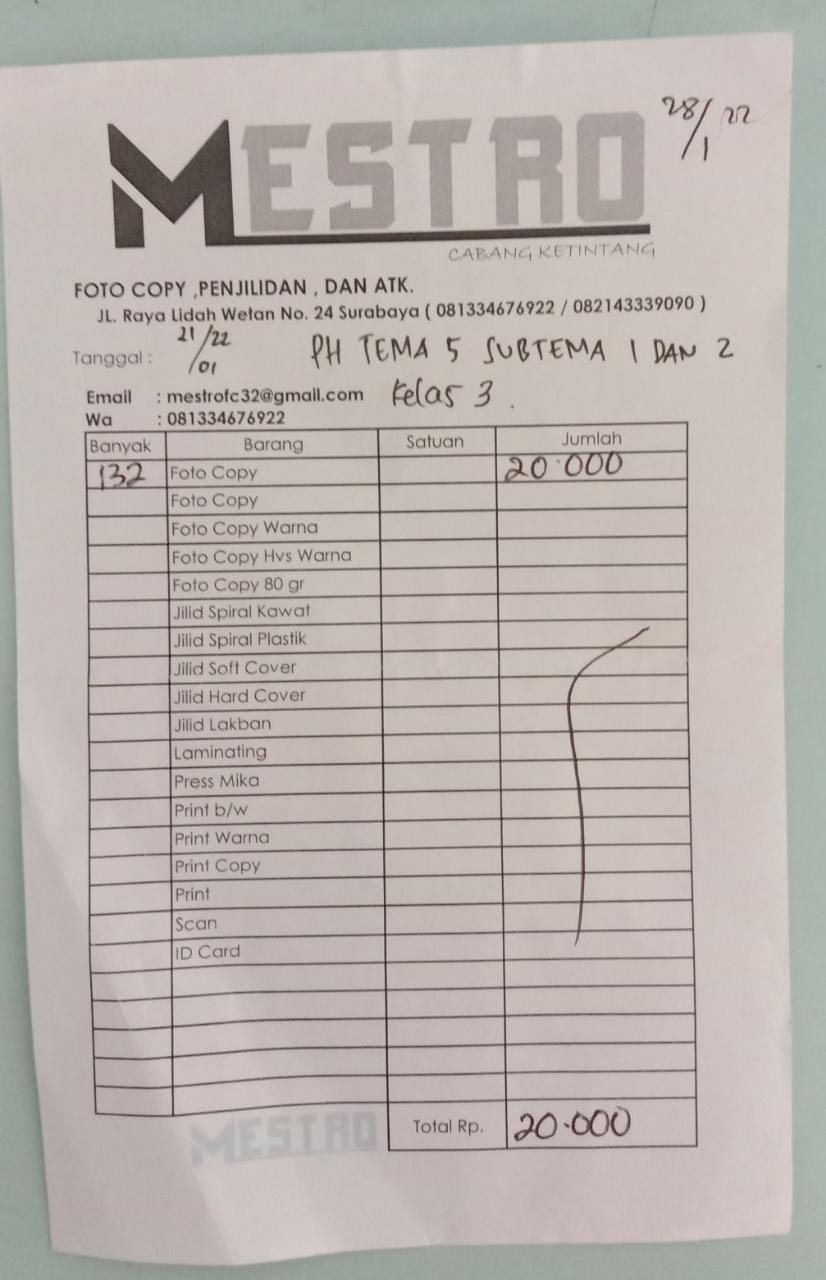 MESTRO
28/1 22
CABANG KETINTANG
FOTO COPY ,PENJILIDAN , DAN ATK.
JL. Raya Lidah Wetan No. 24 Surabaya ( 081334676922 / 082143339090 )
Tanggal : 21/01 /22 PH TEMA 5 SUBTEMA 1 DAN 2
Email : mestrofc32@gmail.com Kelas 3 .
Wa : 081334676922
Banyak Barang Satuan Jumlah
132 Foto Copy 20.000
Foto Copy
Foto Copy Warna
Foto Copy Hvs Warna
Foto Copy 80 gr
Jilid Spiral Kawat
Jilid Spiral Plastik
Jilid Soft Cover
Jilid Hard Cover
Jilid Lakban
Laminating
Press Mika
Print b/w
Print Warna
Print Copy
Print
Scan
ID Card
MESTRO Total Rp. 20.000